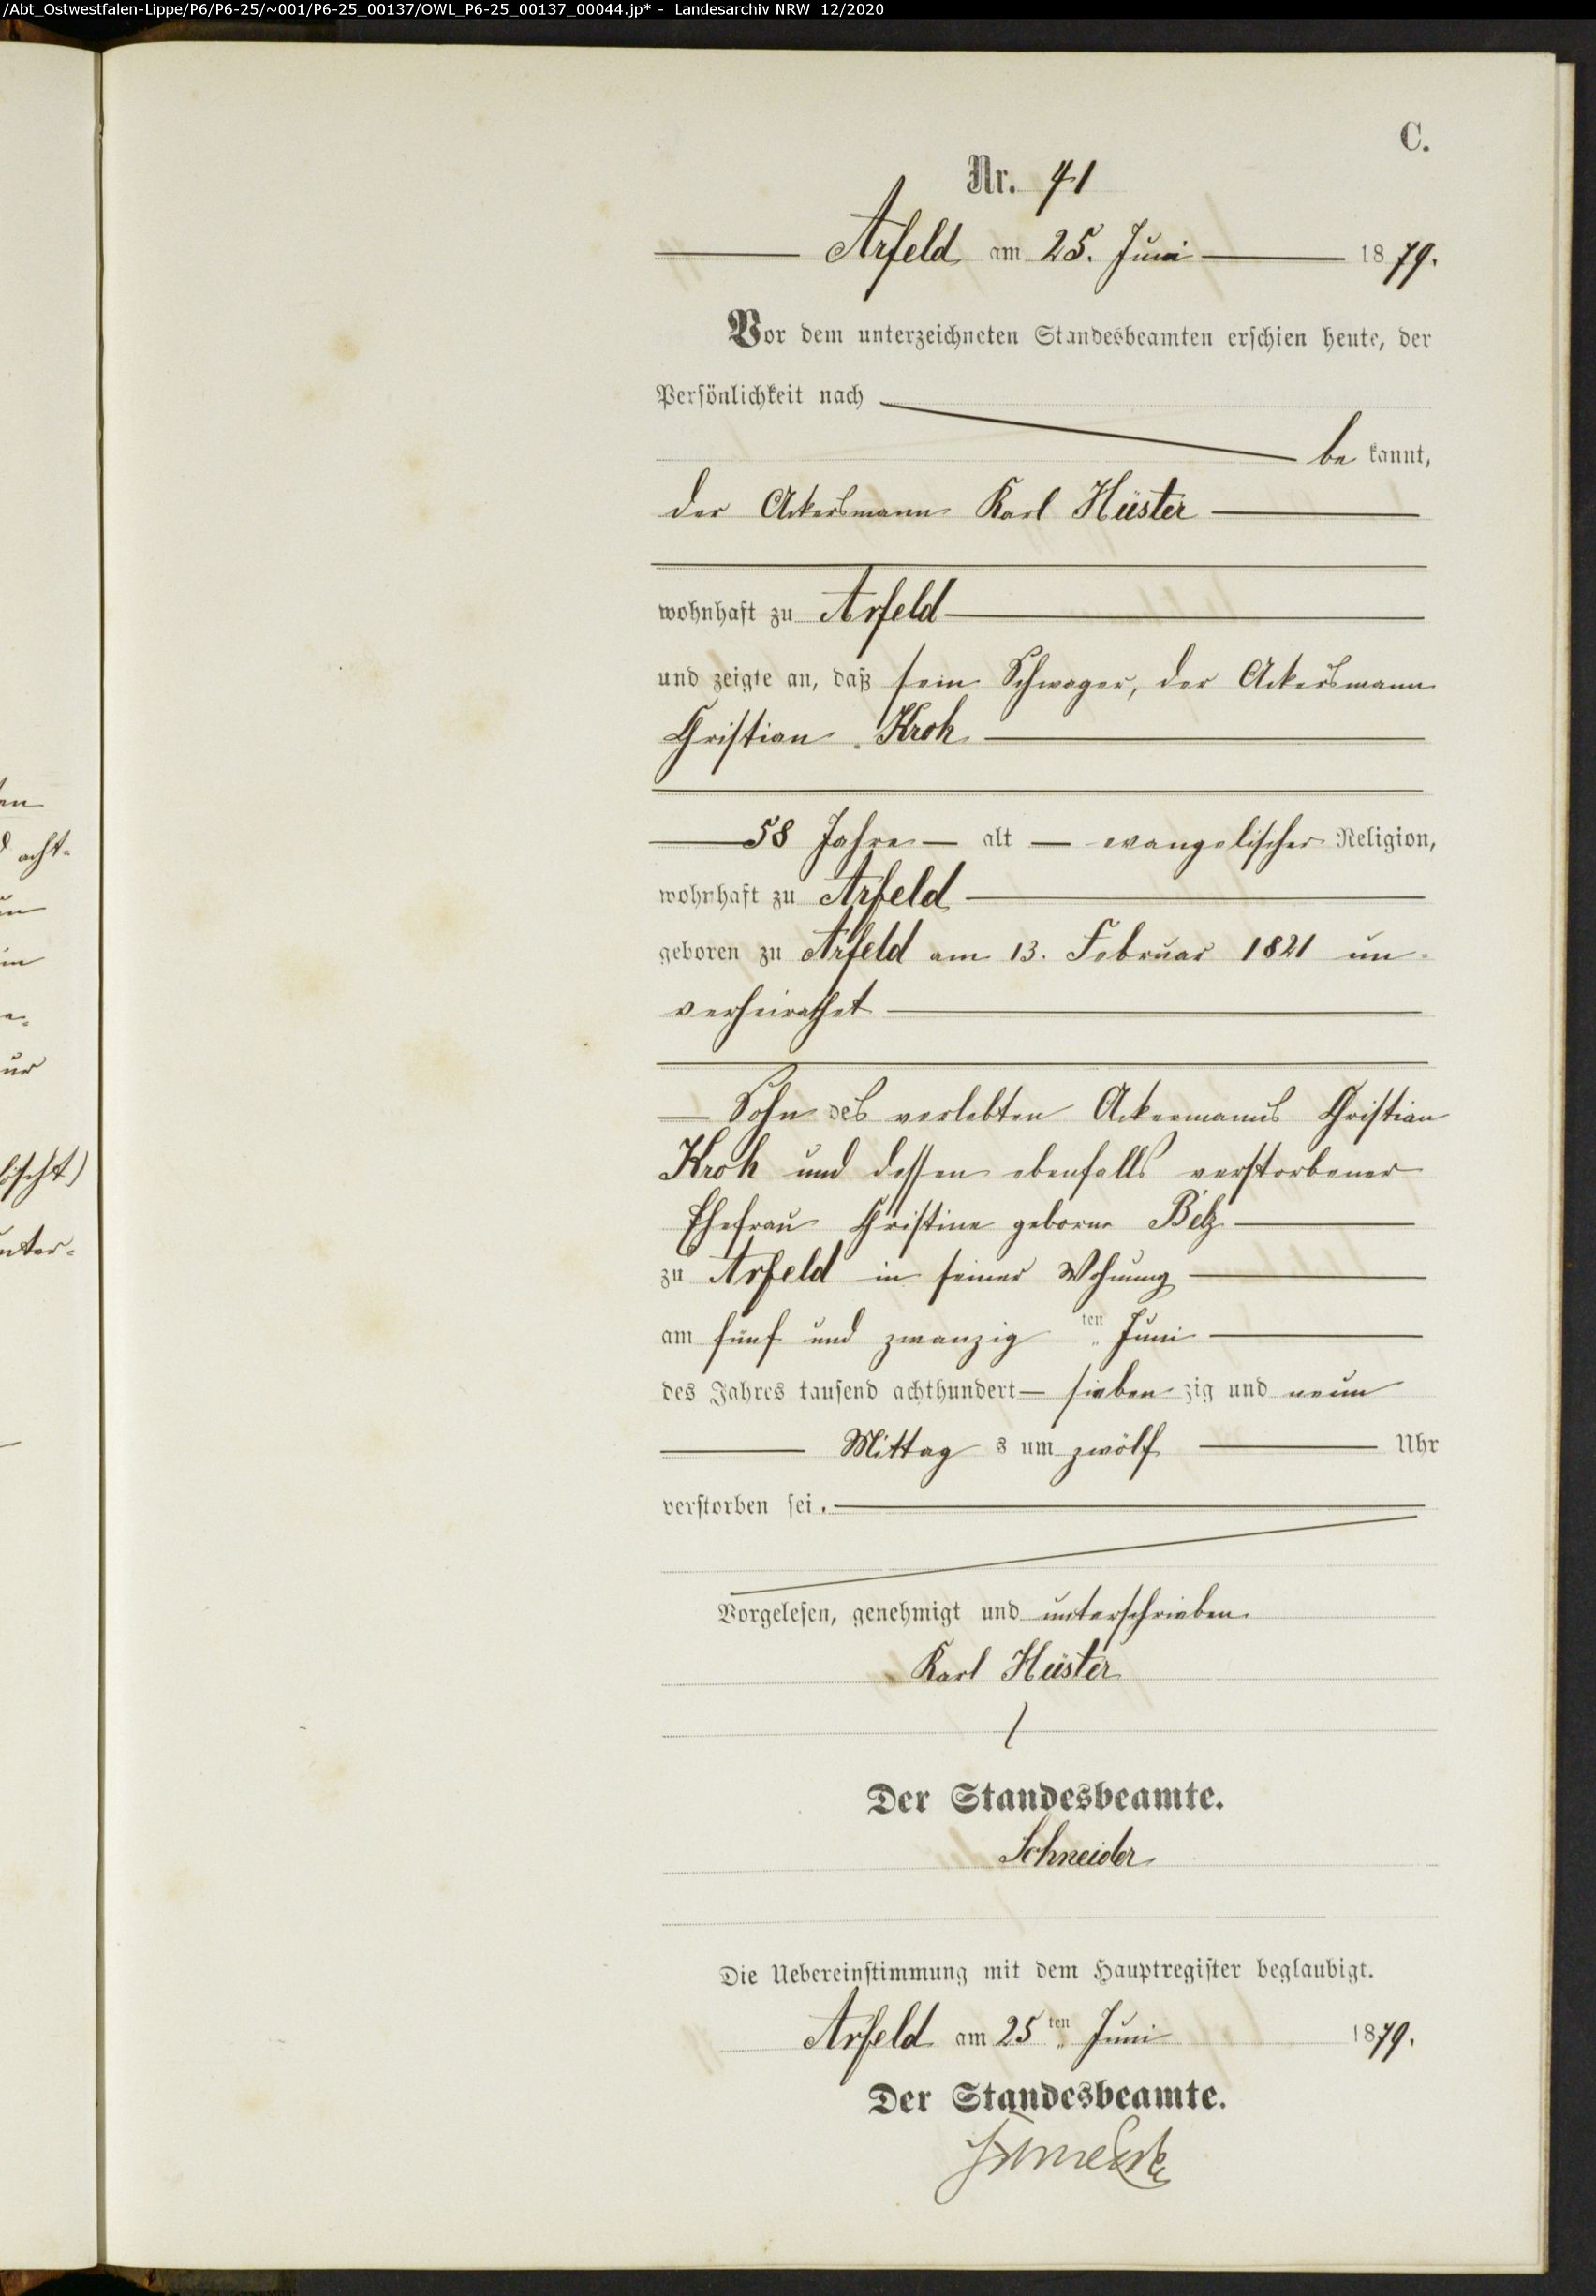 /Abt_Ostwestfalen-Lippe/P6/P6-25/~001/P6-25_00137/OWL_P6-25_00137_00044.jp* - Landesarchiv NRW 12/2020
C.
Nr. 41
Arfeld am 25. Juni 1879.
Vor dem unterzeichneten Standesbeamten erschien heute, der
Persönlichkeit nach
be kannt,
der Ackersmann Karl Hüster
wohnhaft zu Arfeld
und zeigte an, daß sein Schwager, der Ackersmann
Christian Kroh
58 Jahre alt evangelischer Religion,
wohnhaft zu Arfeld
geboren zu Arfeld am 13. Februar 1821 un-
verheirathet
Sohn des verlebten Ackermanns Christian
Kroh und dessen ebenfalls verstorbener
Ehefrau Christine geborne Belz
zu Arfeld in seiner Wohnung
am fünf und zwanzig ten Juni
des Jahres tausend achthundert sieben zig und neun
Mittag s um zwölf Uhr
verstorben sei.
Vorgelesen, genehmigt und unterschrieben.
Karl Hüster
Der Standesbeamte.
Schneider
Die Uebereinstimmung mit dem Hauptregister beglaubigt.
Arfeld am 25 ten Juni 1879.
Der Standesbeamte.
acht-
ur
löscht)
unter-